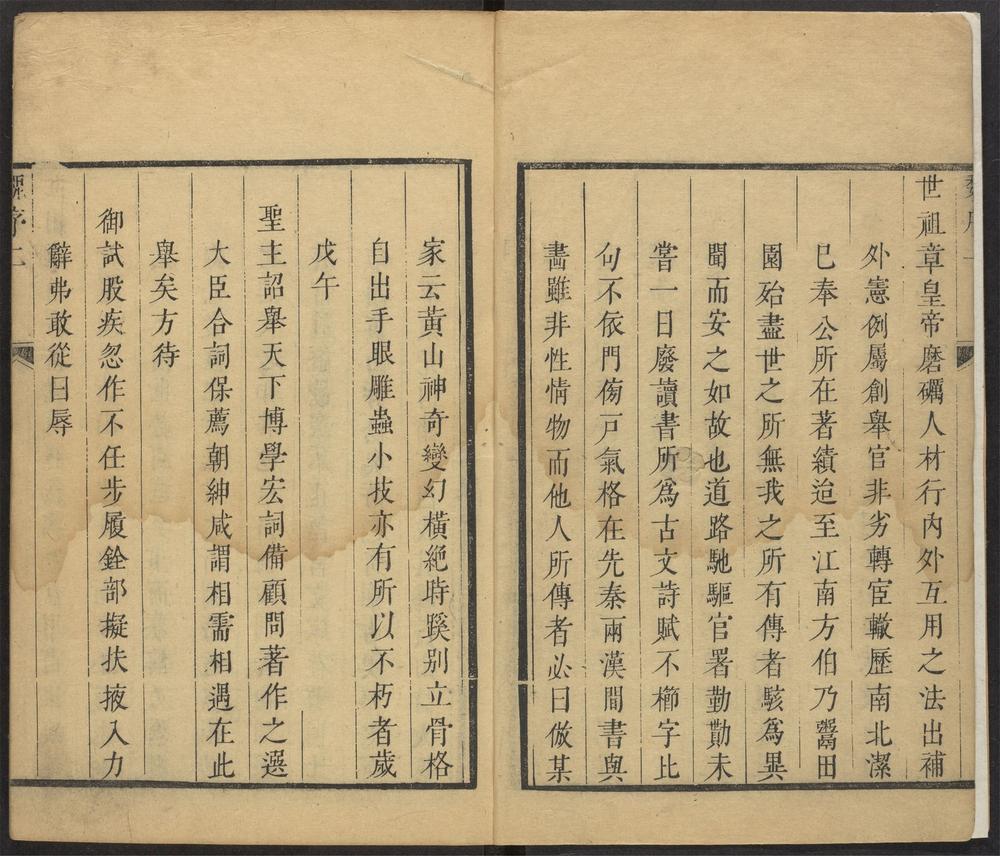 世祖章皇帝磨礪人材行內外互用之法出補
外憲例屬創舉官非劣轉宦轍歷南北潔
巳奉公所在著績迨至江南方伯乃鬻田
園殆盡世之所無我之所有傳者駭為異
聞而安之如故也道路馳驅官署勤勩未
嘗一日廢讀書所為古文詩賦不櫛字比
句不依門傍戸氣格在先秦兩漢間書與
畵雖非性情物而他人所傳者必曰倣某
家云黃山神奇變幻橫絶時蹊别立骨格
自出手眼雕蟲小技亦有所以不朽者歲
戊午
聖主詔舉天下博學宏詞備顧問著作之選
大臣合詞保薦朝紳咸謂相需相遇在此
舉矣方待
御試股疾忽作不任步履銓部擬扶掖入力
辭弗敢從曰辱
序二